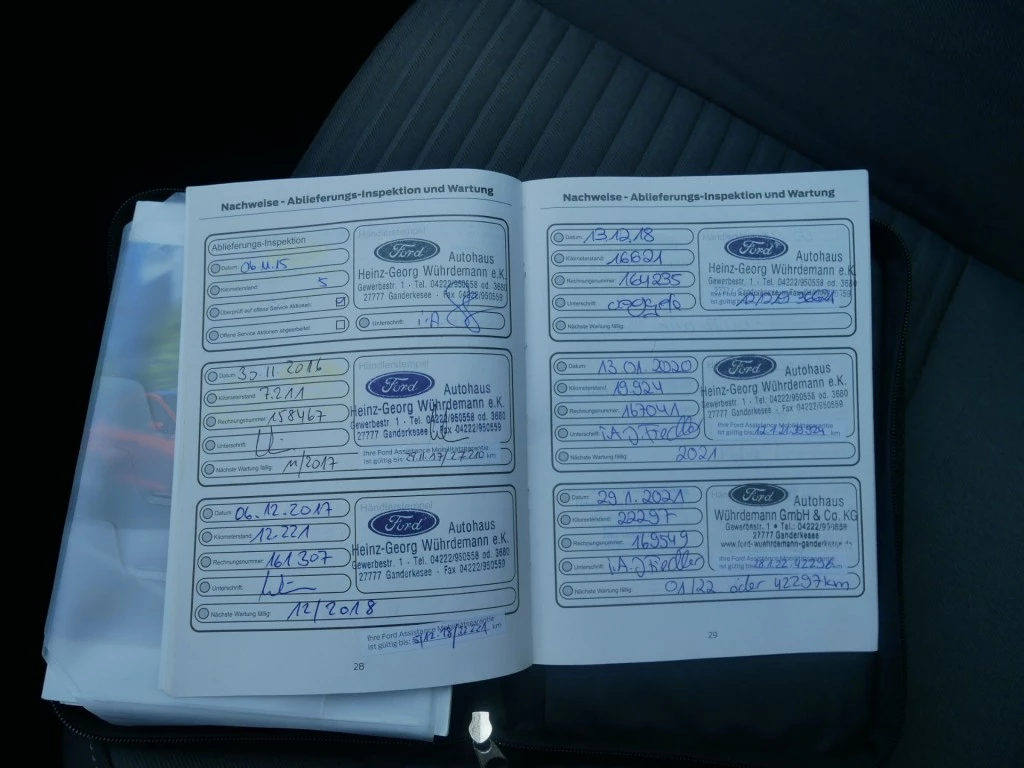 Nachweise - Ablieferungs-Inspektion und Wartung
Ablieferungs-Inspektion
Händlerstempel
Datum: 06.11.15
Kilometerstand: 5
Überprüft auf offene Service Aktionen:
Offene Service Aktionen abgearbeitet:
Ford
Autohaus
Heinz-Georg Wührdemann e.K.
Gewerbestr. 1 - Tel. 04222/950558 od. 3660
27777 Ganderkesee - Fax 04222/950559
Unterschrift: i.A.
Datum: 30.11.2016
Kilometerstand: 7.211
Rechnungsnummer: 158467
Unterschrift:
Nächste Wartung fällig: 11/2017
Händlerstempel
Ford
Autohaus
Heinz-Georg Wührdemann e.K.
Gewerbestr. 1 - Tel. 04222/950558 od. 3660
27777 Ganderkesee - Fax 04222/950559
Ihre Ford Assistance Mobilitätsgarantie
ist gültig bis: 29.11.17/27.210 km
Datum: 06.12.2017
Kilometerstand: 12.221
Rechnungsnummer: 161307
Unterschrift:
Nächste Wartung fällig: 12/2018
Händlerstempel
Ford
Autohaus
Heinz-Georg Wührdemann e.K.
Gewerbestr. 1 - Tel. 04222/950558 od. 3660
27777 Ganderkesee - Fax 04222/950559
Ihre Ford Assistance Mobilitätsgarantie
ist gültig bis: 5/12.18/22.221 km
28
Nachweise - Ablieferungs-Inspektion und Wartung
Datum: 13.12.18
Kilometerstand: 16621
Rechnungsnummer: 164235
Unterschrift:
Nächste Wartung fällig:
Ford
Autohaus
Heinz-Georg Wührdemann e.K.
Gewerbestr. 1 - Tel. 04222/950558 od. 3660
27777 Ganderkesee - Fax 04222/950559
Datum: 13.01.2020
Kilometerstand: 19.924
Rechnungsnummer: 167041
Unterschrift: i.A. J Fiedler
Nächste Wartung fällig: 2021
Ford
Autohaus
Heinz-Georg Wührdemann e.K.
Gewerbestr. 1 - Tel. 04222/950558 od. 3660
27777 Ganderkesee - Fax 04222/950559
Ihre Ford Assistance Mobilitätsgarantie
ist gültig bis: km
Datum: 29.1.2021
Kilometerstand: 22297
Rechnungsnummer: 169549
Unterschrift: i.A. J Fiedler
Nächste Wartung fällig: 01/22 oder 42297km
Ford
Autohaus
Wührdemann GmbH & Co. KG
Gewerbestr. 1 • Tel.: 04222/950558
27777 Ganderkesee
www.ford-wuehrdemann-ganderkesee.de
Ihre Ford Assistance Mobilitätsgarantie
ist gültig bis: 28.1.22 42296 km
29